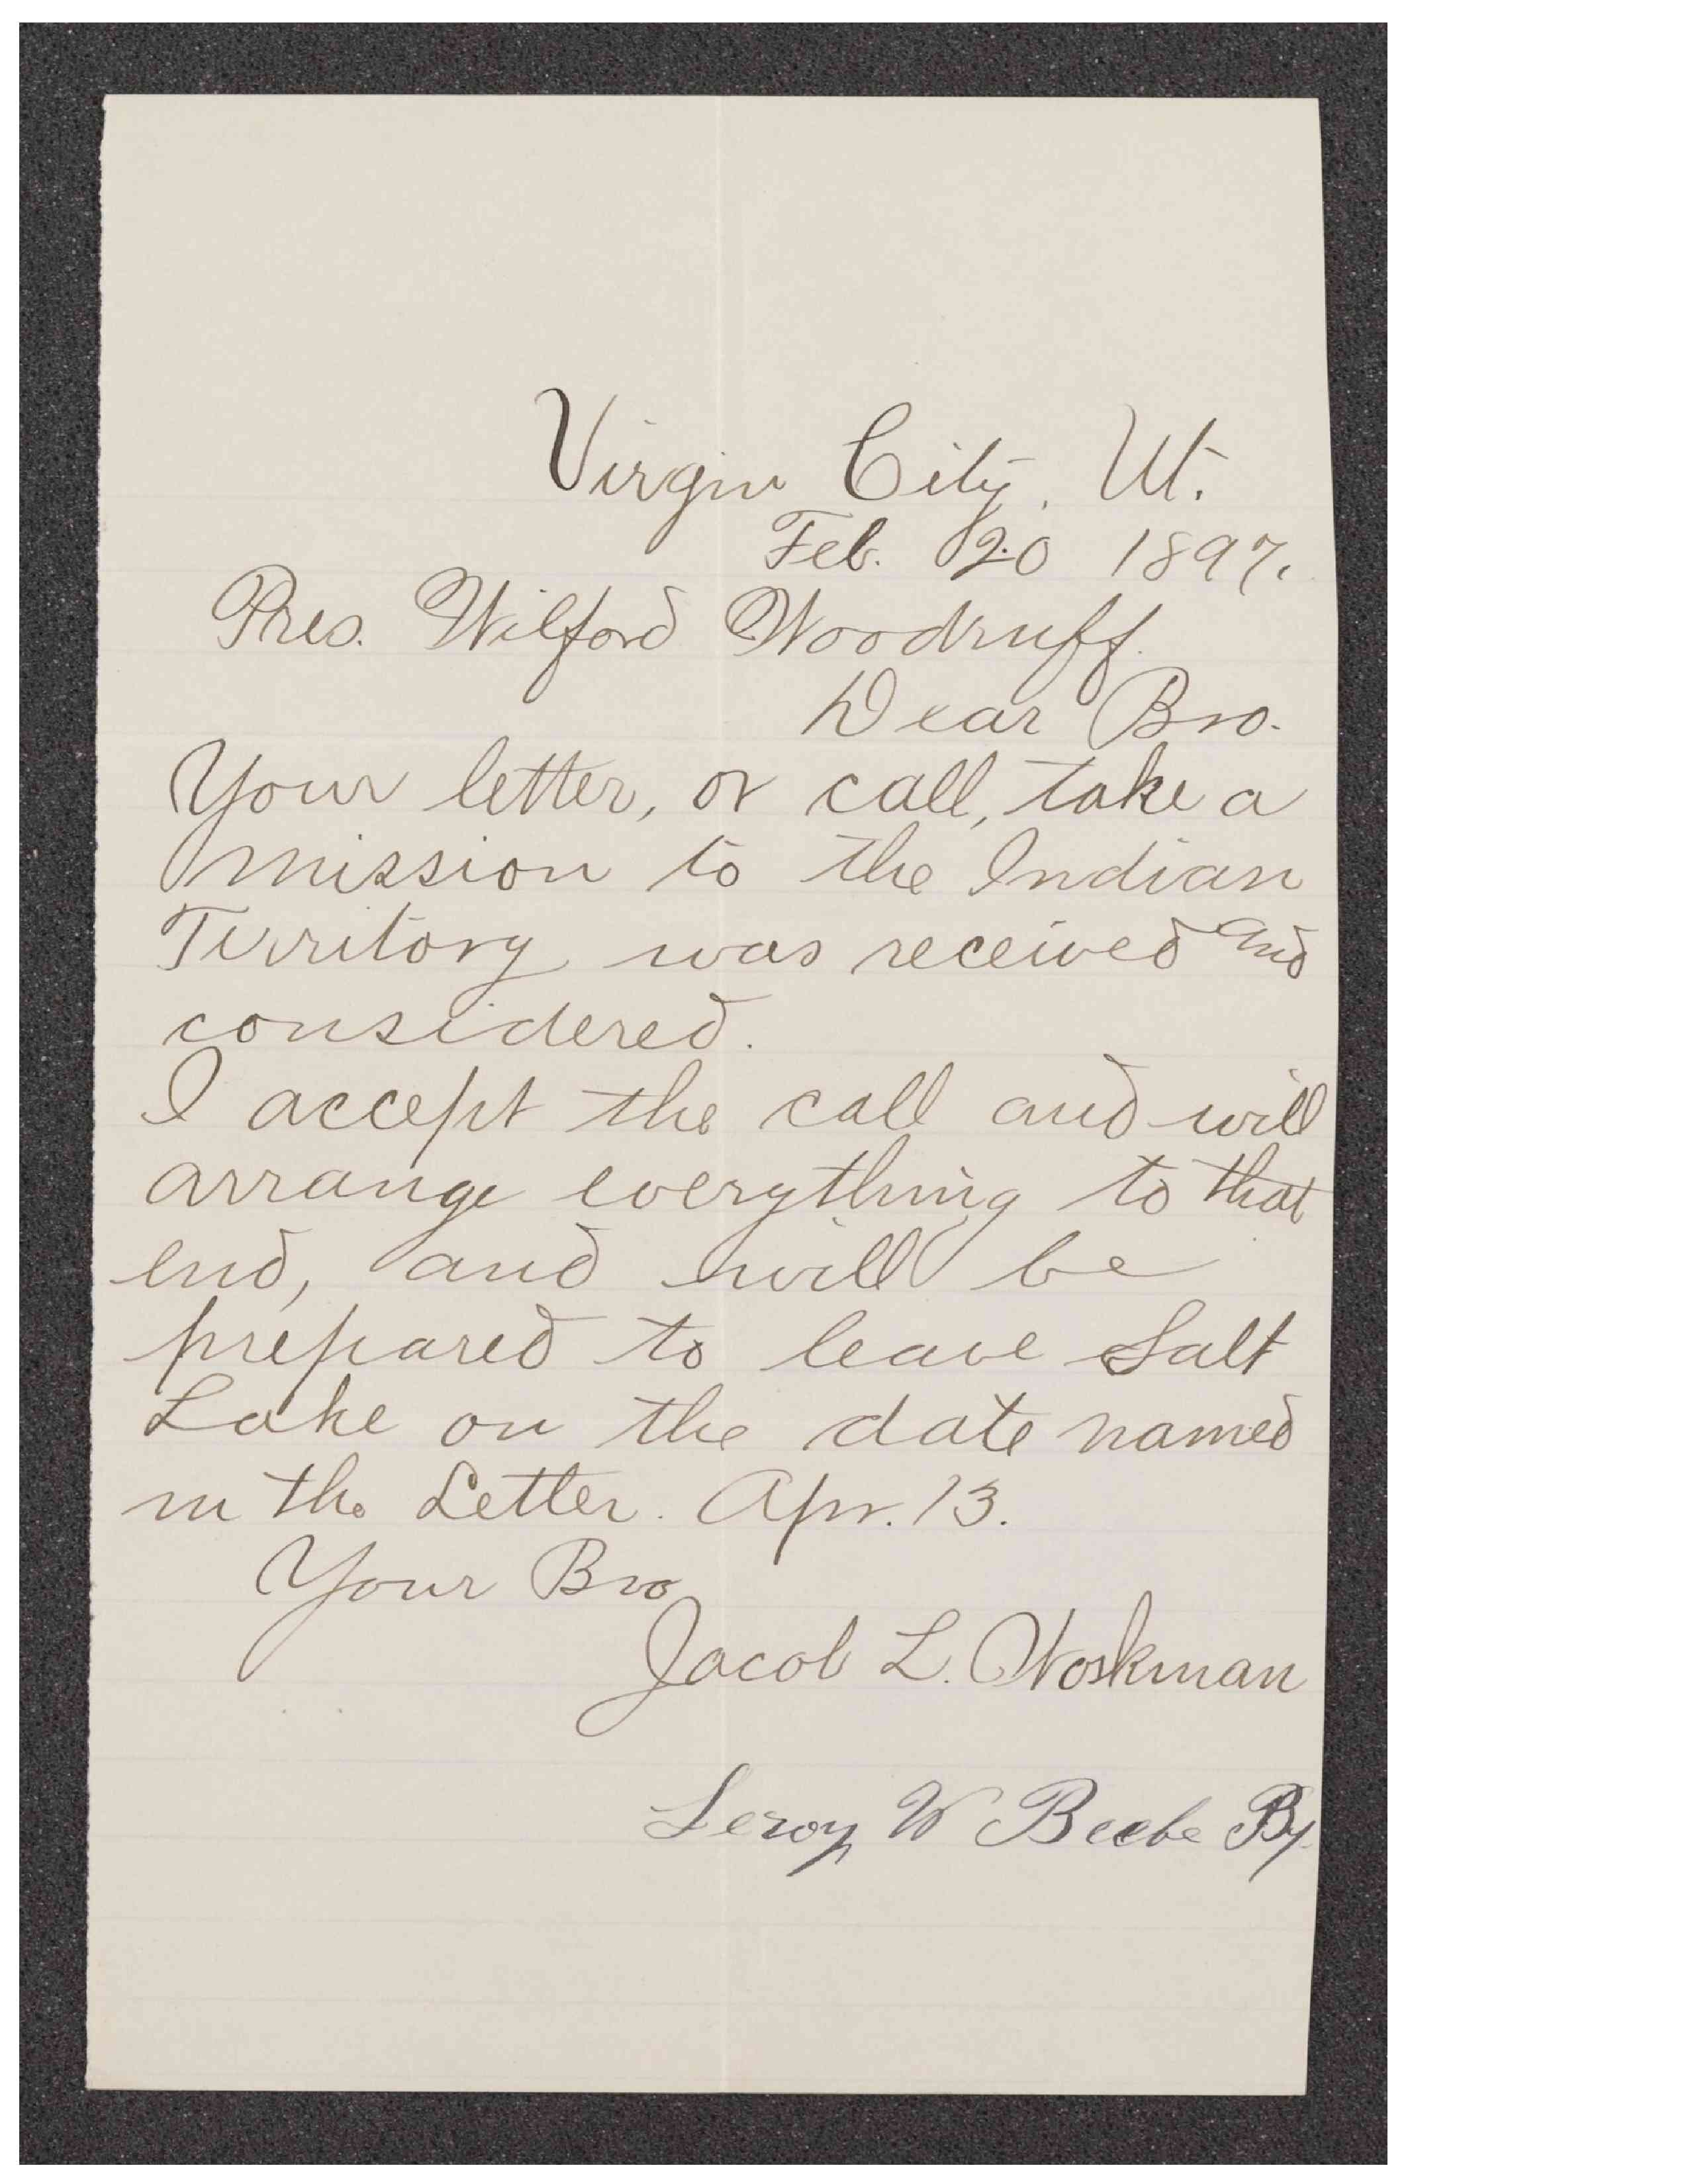 Virgin City, Ut.
Feb. 20 1897.
Pres. Wilford Woodruff.
Dear Bro.
Your letter, or call, take a
mission to the Indian
Territory was received and
considered.
I accept the call and will
arrange everything to that
end, and will be
prepared to leave Salt
Lake on the date named
in the Letter. Apr. 13.
Your Bro
Jacob L. Workman
Leroy W Beebe Bp.